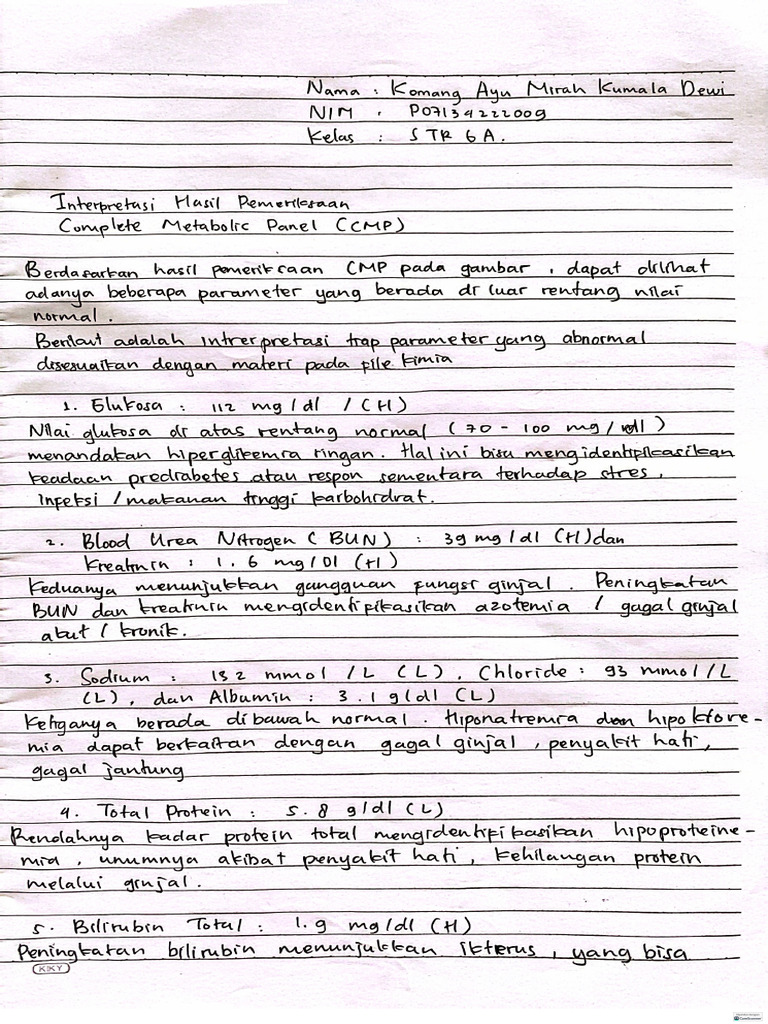 Nama : Komang Ayu Mirah Kumala Dewi
NIM . P07134222009
Kelas : STR 6A.
Interpretasi Hasil Pemeriksaan
Complete Metabolic Panel (CMP)
Berdasarkan hasil pemeriksaan CMP pada gambar , dapat dilihat
adanya beberapa parameter yang berada di luar rentang nilai
normal .
Berikut adalah intrerpretasi tiap parameter yang abnormal
disesuaikan dengan materi pada file kimia
1. Glukosa : 112 mg/dl / (H)
Nilai glukosa di atas rentang normal (70 - 100 mg/dl)
menandakan hiperglikemia ringan. Hal ini bisa mengidentifikasikan
keadaan prediabetes atau respon sementara terhadap stres,
infeksi / makanan tinggi karbohidrat.
2. Blood Urea Nitrogen (BUN) : 39 mg/dl (H) dan
Kreatinin : 1.6 mg/Dl (H)
Keduanya menunjukkan gangguan fungsi ginjal . Peningkatan
BUN dan kreatinin mengidentifikasikan azotemia / gagal ginjal
akut / kronik.
3. Sodium : 132 mmol /L (L) , Chloride : 93 mmol/L
(L) , dan Albumin : 3.1 g/dl (L)
Ketiganya berada dibawah normal . Hiponatremia dan hipoklore-
mia dapat berkaitan dengan gagal ginjal , penyakit hati,
gagal jantung
4. Total Protein : 5.8 g/dl (L)
Rendahnya kadar protein total mengidentifikasikan hipoproteine-
mia , umumnya akibat penyakit hati , kehilangan protein
melalui ginjal .
5. Bilirubin Total : 1.9 mg/dl (H)
Peningkatan bilirubin menunjukkan ikterus , yang bisa
KIKY
CamScanner